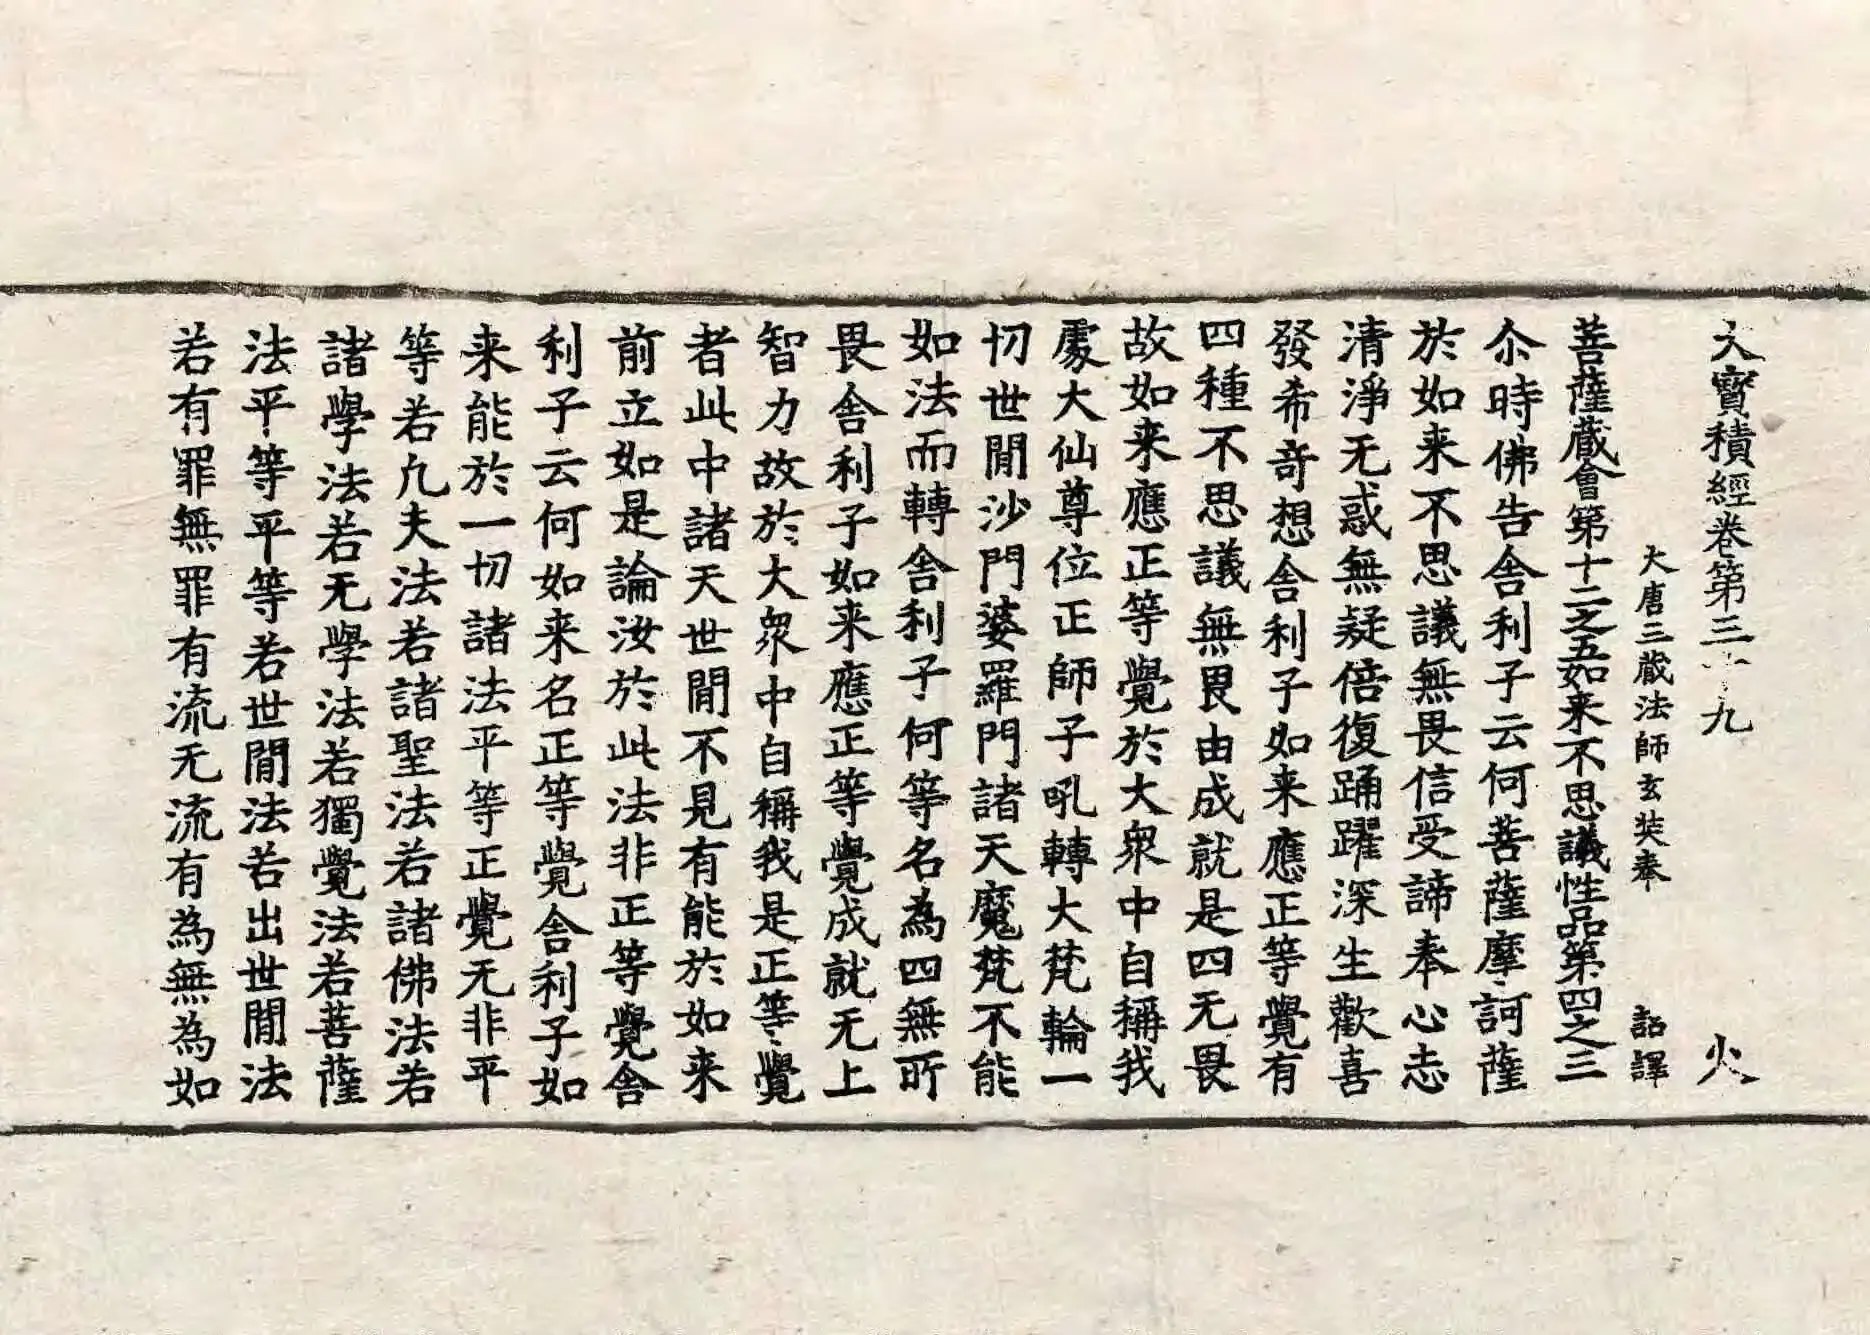 大寶積經卷第三十九 火
大唐三藏法師玄奘奉 詔譯
菩薩藏會第十二之五如来不思議性品第四之三
尒時佛告舍利子云何菩薩摩訶薩
於如来不思議無畏信受諦奉心志
清淨无惑無疑倍復踊躍深生歡喜
發希奇想舍利子如来應正等覺有
四種不思議無畏由成就是四无畏
故如来應正等覺於大衆中自稱我
處大仙尊位正師子吼轉大梵輪一
切世閒沙門婆羅門諸天魔梵不能
如法而轉舍利子何等名為四無所
畏舍利子如来應正等覺成就无上
智力故於大衆中自稱我是正等覺
者此中諸天世閒不見有能於如来
前立如是論汝於此法非正等覺舍
利子云何如来名正等覺舍利子如
来能於一切諸法平等正覺无非平
等若凢夫法若諸聖法若諸佛法若
諸學法若无學法若獨覺法若菩薩
法平等平等若世閒法若出世閒法
若有罪無罪有流无流有為無為如